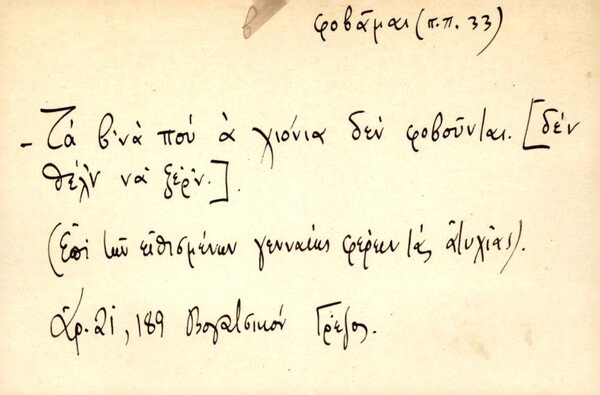 φοβᾶμαι (π.π. 33)
- Τά β'νά πού ἁ χιόνια δέν φοβοῦνται. [δέν
θέλ'ν νά ξέρ'ν.].
(Ἐπί τῶν εἰθισμένων γενναίως φέρειν τάς ἀτυχίας).
Ἀρ. 21, 189 Βογατσικόν